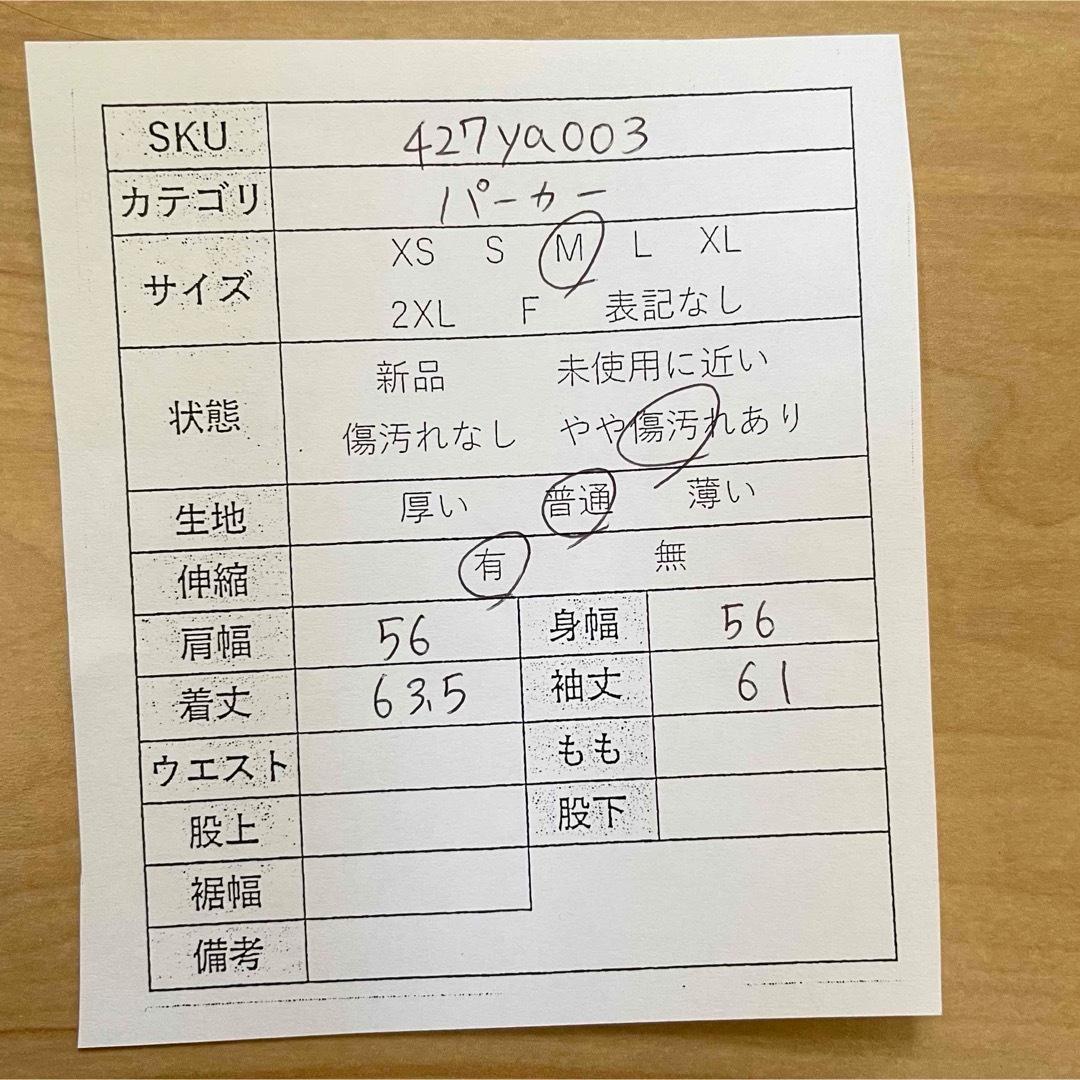 SKU 427ya003
カテゴリ パーカー
サイズ XS S M L XL
2XL F 表記なし
状態 新品 未使用に近い
傷汚れなし やや傷汚れあり
生地 厚い 普通 薄い
伸縮 有 無
肩幅 56 身幅 56
着丈 63.5 袖丈 61
ウエスト もも
股上 股下
裾幅
備考